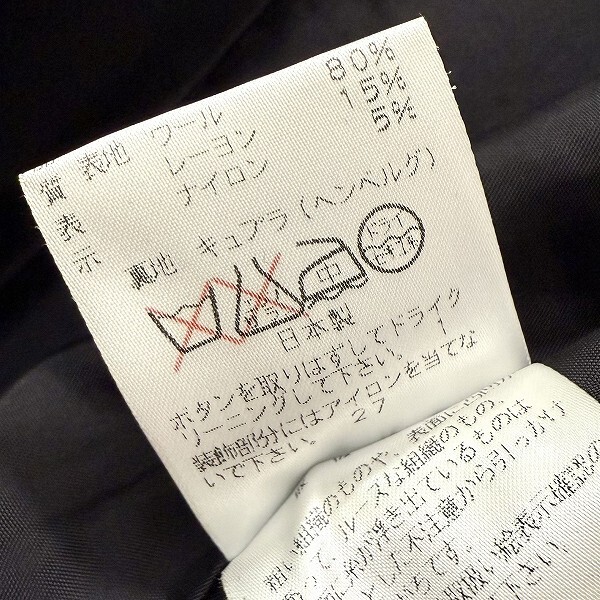 品質表示
表地 ウール 80%
レーヨン 15%
ナイロン 5%
裏地 キュプラ(ヘンヘルグ)
エンソ
サラシ
中
ドライ
セキユ系
日本製
ボタンを取りはずしてドライク
リーニングして下さい。
装飾部分にはアイロンを当てな
いで下さい。 27
粗い組織のものや、表面に
ルーズな組織のもの、
糸が浮き出ているものは
不注意から引っかけ
です。
取扱い絵表示確認の
下さい。